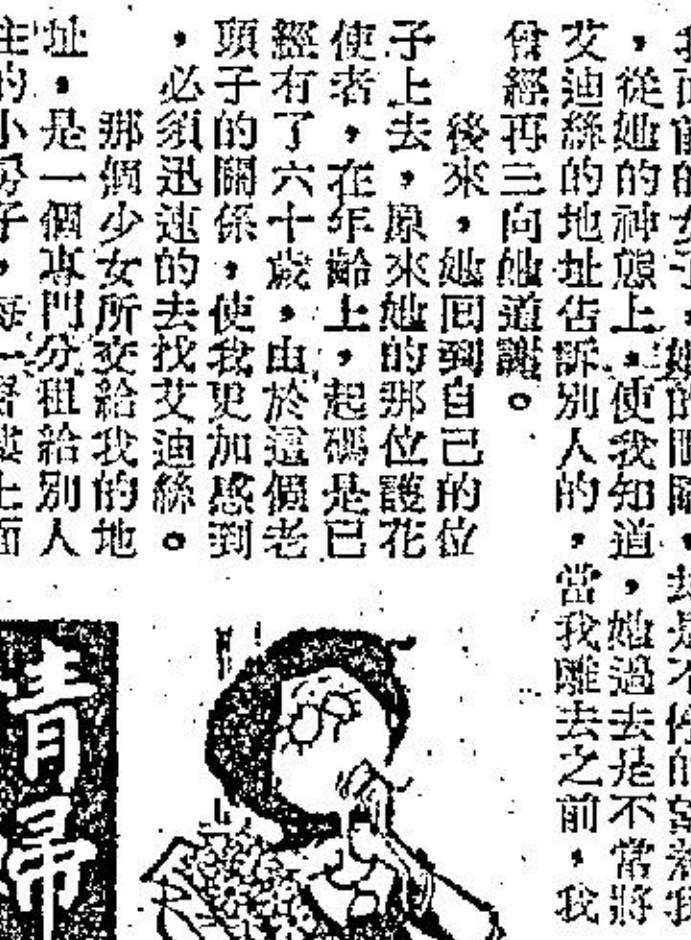 我面前的女子，她的是不停的望着我
，從她的神態上，使我知道，她過去是不常將
艾迪絲的地址告訴別人的，當我離去之前，我
曾經再三向她道謝。
後來，她回到自己的位
子上去，原來她的那位護花
使者，在年齡上，起碼是已
經有了六十歲，由於這個老
頭子的關係，使我更加感到
，必須迅速的去找艾迪絲。
那個少女所交給我的地
址，是一個專門分租給別人
住的小房子，每一層樓上面